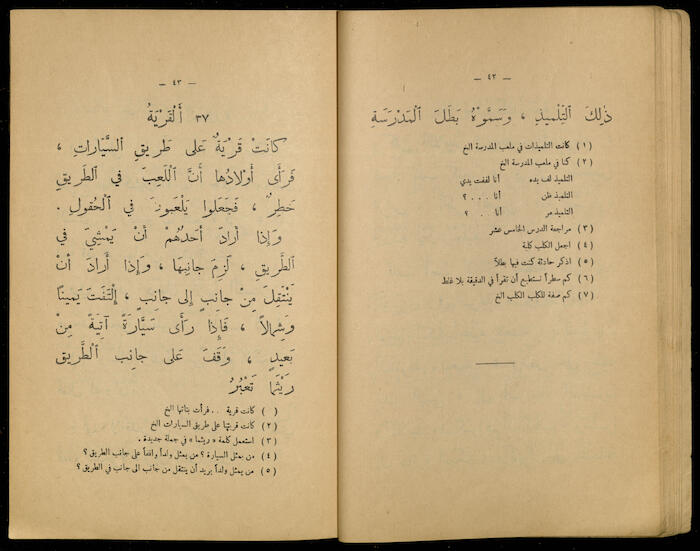 — ٤٢ —
ذٰلِكَ ٱلتِّلْمِيذِ ، وَسَمَّوْهُ بَطَلَ ٱلْمَدْرَسَةِ
(١) كانت التلميذات في ملعب المدرسة الخ
(٢) كنا في ملعب المدرسة الخ
التلميذ لف يده أنا لففت يدي
التلميذ ظن أنا . . . ؟
التلميذ مر أنا . . ؟
(٣) مراجعة الدرس الخامس عشر
(٤) اجعل الكلب كلبة
(٥) اذكر حادثة كنت فيها بطلاً
(٦) كم سطراً تستطيع أن تقرأ في الدقيقة بلا غلط
(٧) كم صفة للكلب الكلب الخ
— ٤٣ —
٣٧ أَلْقَرْيَةُ
كَانَتْ قَرْيَةٌ عَلَى طَرِيقِ ٱلسَّيَّارَاتِ ،
فَرَأَى أَوْلَادُهَا أَنَّ ٱللَّعِبَ فِي ٱلطَّرِيقِ
خَطِرٌ ، فَجَعَلُوا يَلْعَبُونَ فِي ٱلْحُقُولِ .
وَإِذَا أَرَادَ أَحَدُهُمْ أَنْ يَمْشِيَ فِي
ٱلطَّرِيقِ ، لَزِمَ جَانِبَهَا ، وَإِذَا أَرَادَ أَنْ
يَنْتَقِلَ مِنْ جَانِبٍ إِلَى جَانِبٍ ، إِلْتَفَتَ يَمِينًا
وَشِمَالًا ، فَإِذَا رَأَى سَيَّارَةً آتِيَةً مِنْ
بَعِيدٍ ، وَقَفَ عَلَى جَانِبِ ٱلطَّرِيقِ
رَيْثَمَا تَعْبُرُ
( ) كانت قرية . . فرأت بناتها الخ
(٢) كانت قريتها على طريق السيارات الخ
(٣) استعمل كلمة « ريثما » في جملة جديدة .
(٤) من يمثل السيارة ؟ من يمثل ولداً واقفاً على جانب الطريق ؟
(٥) من يمثل ولداً يريد أن ينتقل من جانب الى جانب في الطريق ؟